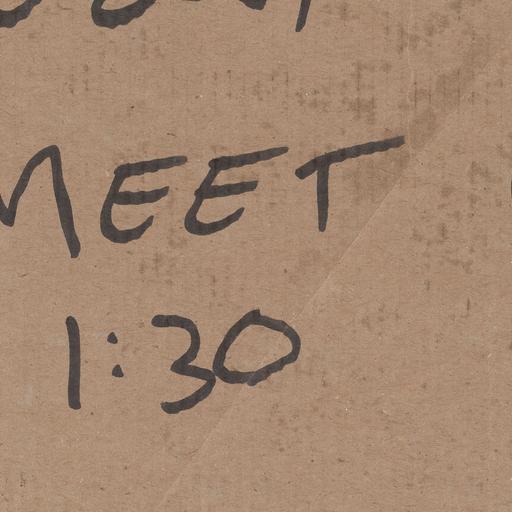 MEET
1:30